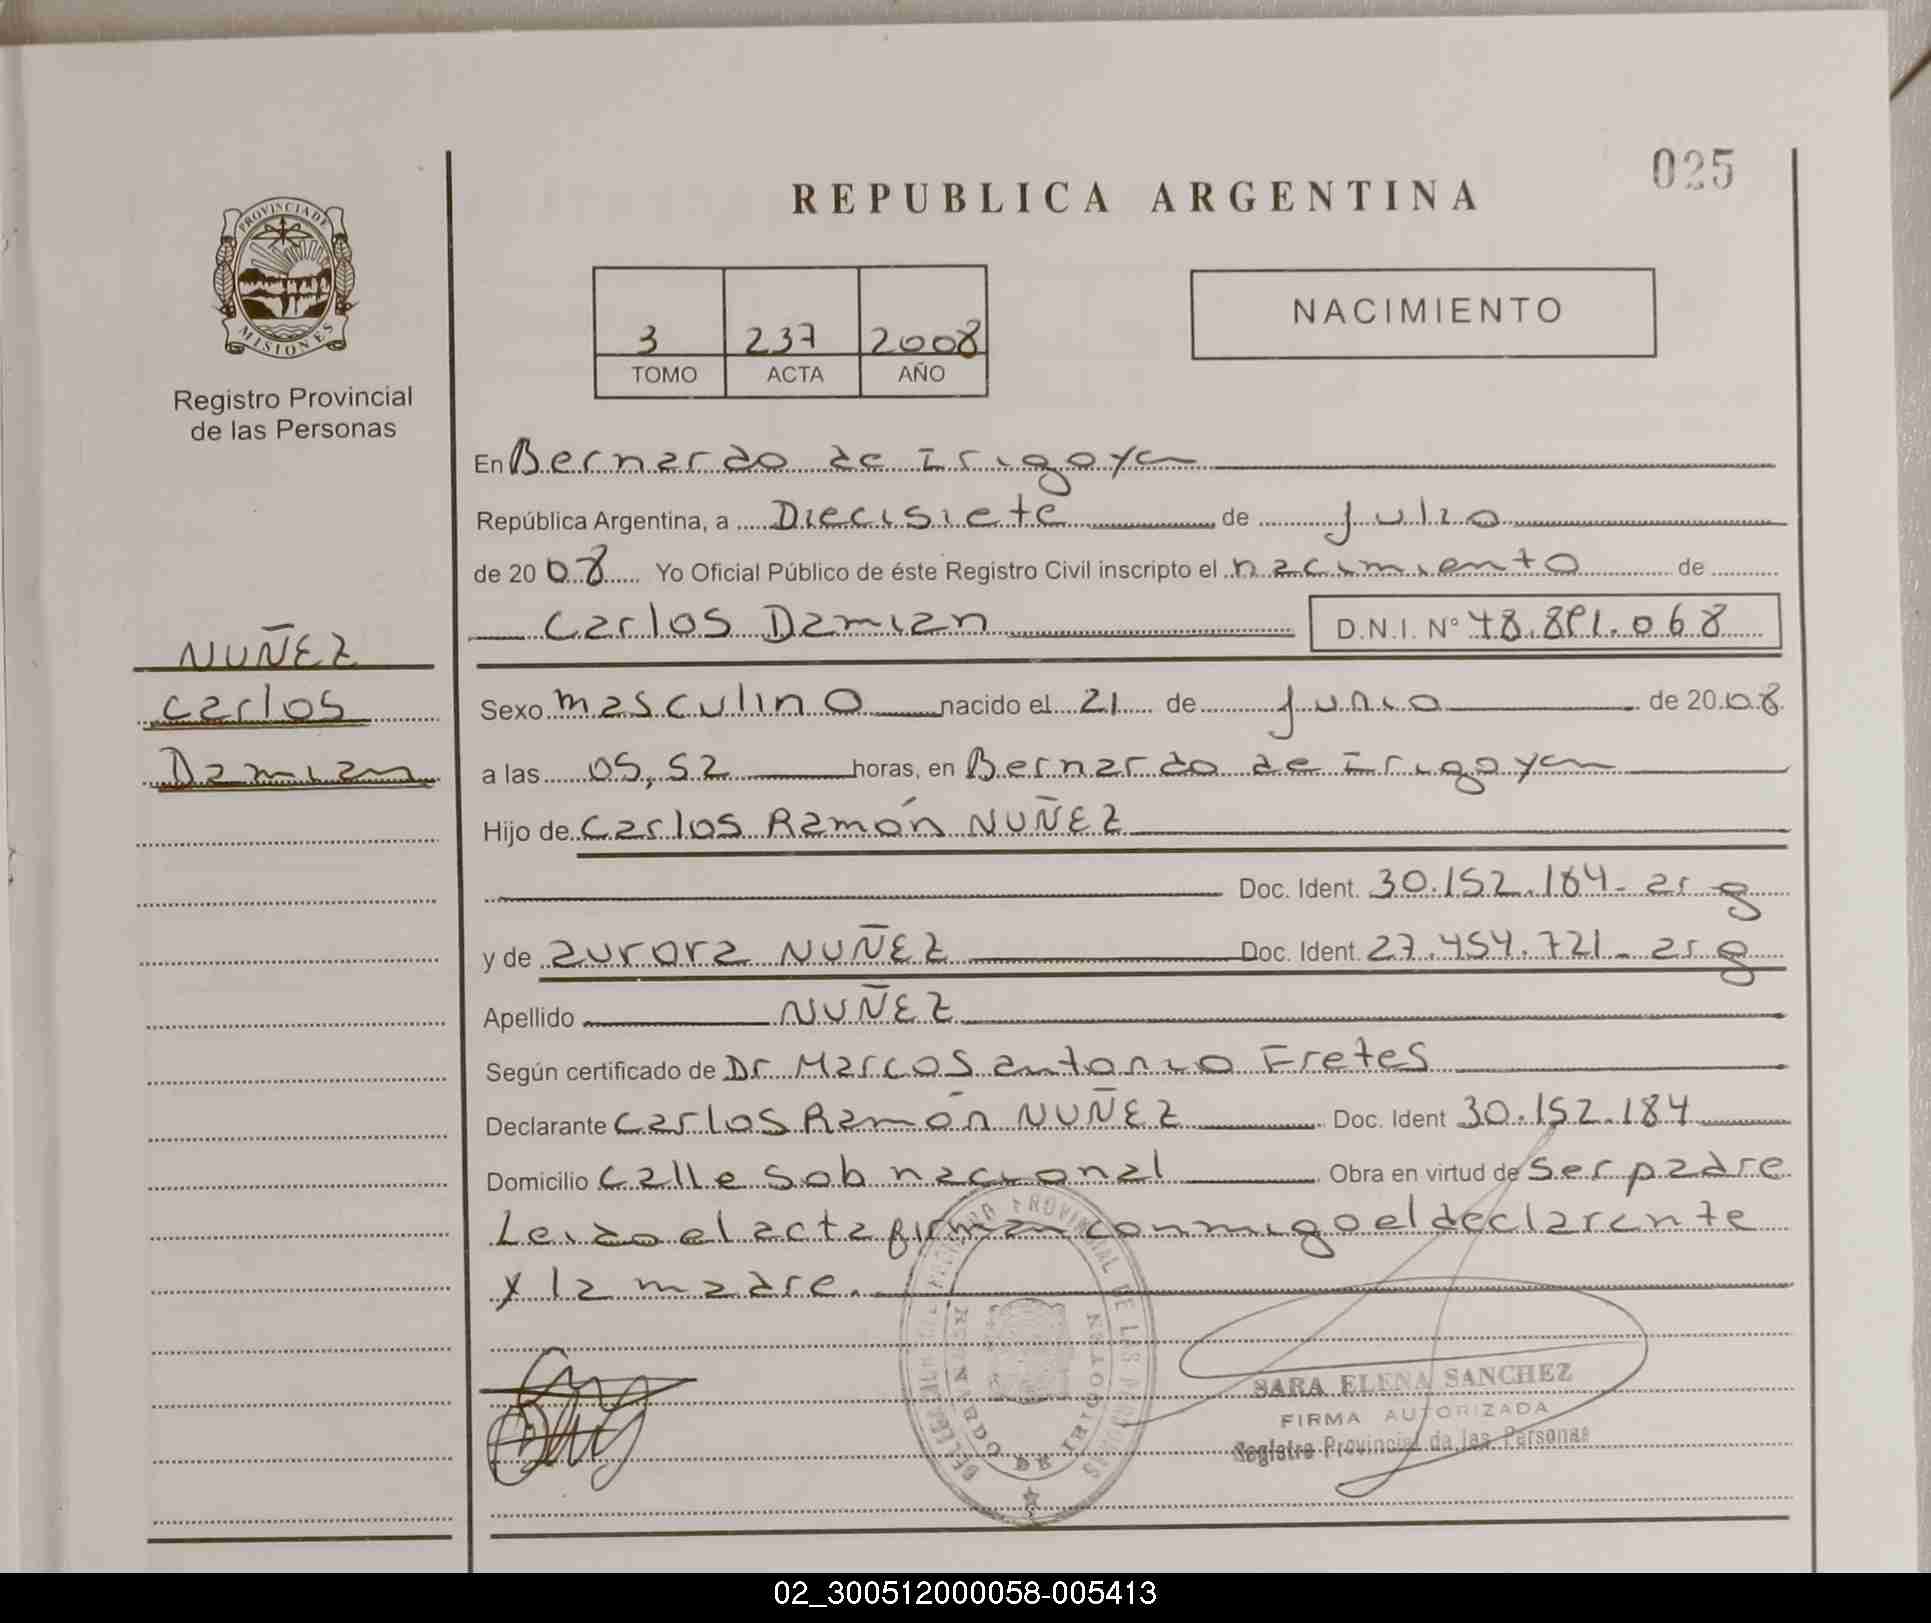 025
REPUBLICA ARGENTINA
PROVINCIA DE
MISIONES
Registro Provincial
de las Personas
3 237 2008
TOMO ACTA AÑO
NACIMIENTO
NUÑEZ
Carlos
Damian
En Bernardo de Irigoyen
República Argentina, a Diecisiete de julio
de 2008 Yo Oficial Público de éste Registro Civil inscripto el nacimiento de
Carlos Damian D.N.I. Nº 48.891.068
Sexo masculino nacido el 21 de junio de 2008
a las 05,52 horas, en Bernardo de Irigoyen
Hijo de Carlos Ramón NUÑEZ
Doc. Ident. 30.152.184- arg
y de aurora NUÑEZ Doc. Ident. 27.454.721- arg
Apellido NUÑEZ
Según certificado de Dr Marcos antonio Fretes
Declarante Carlos Ramón NUÑEZ Doc. Ident 30.152.184
Domicilio Calle Sob nacional Obra en virtud de Ser padre
Leido el acta firman conmigo el declarante
y la madre.
SARA ELENA SANCHEZ
FIRMA AUTORIZADA
Registro Provincial de las Personas
02_300512000058-005413